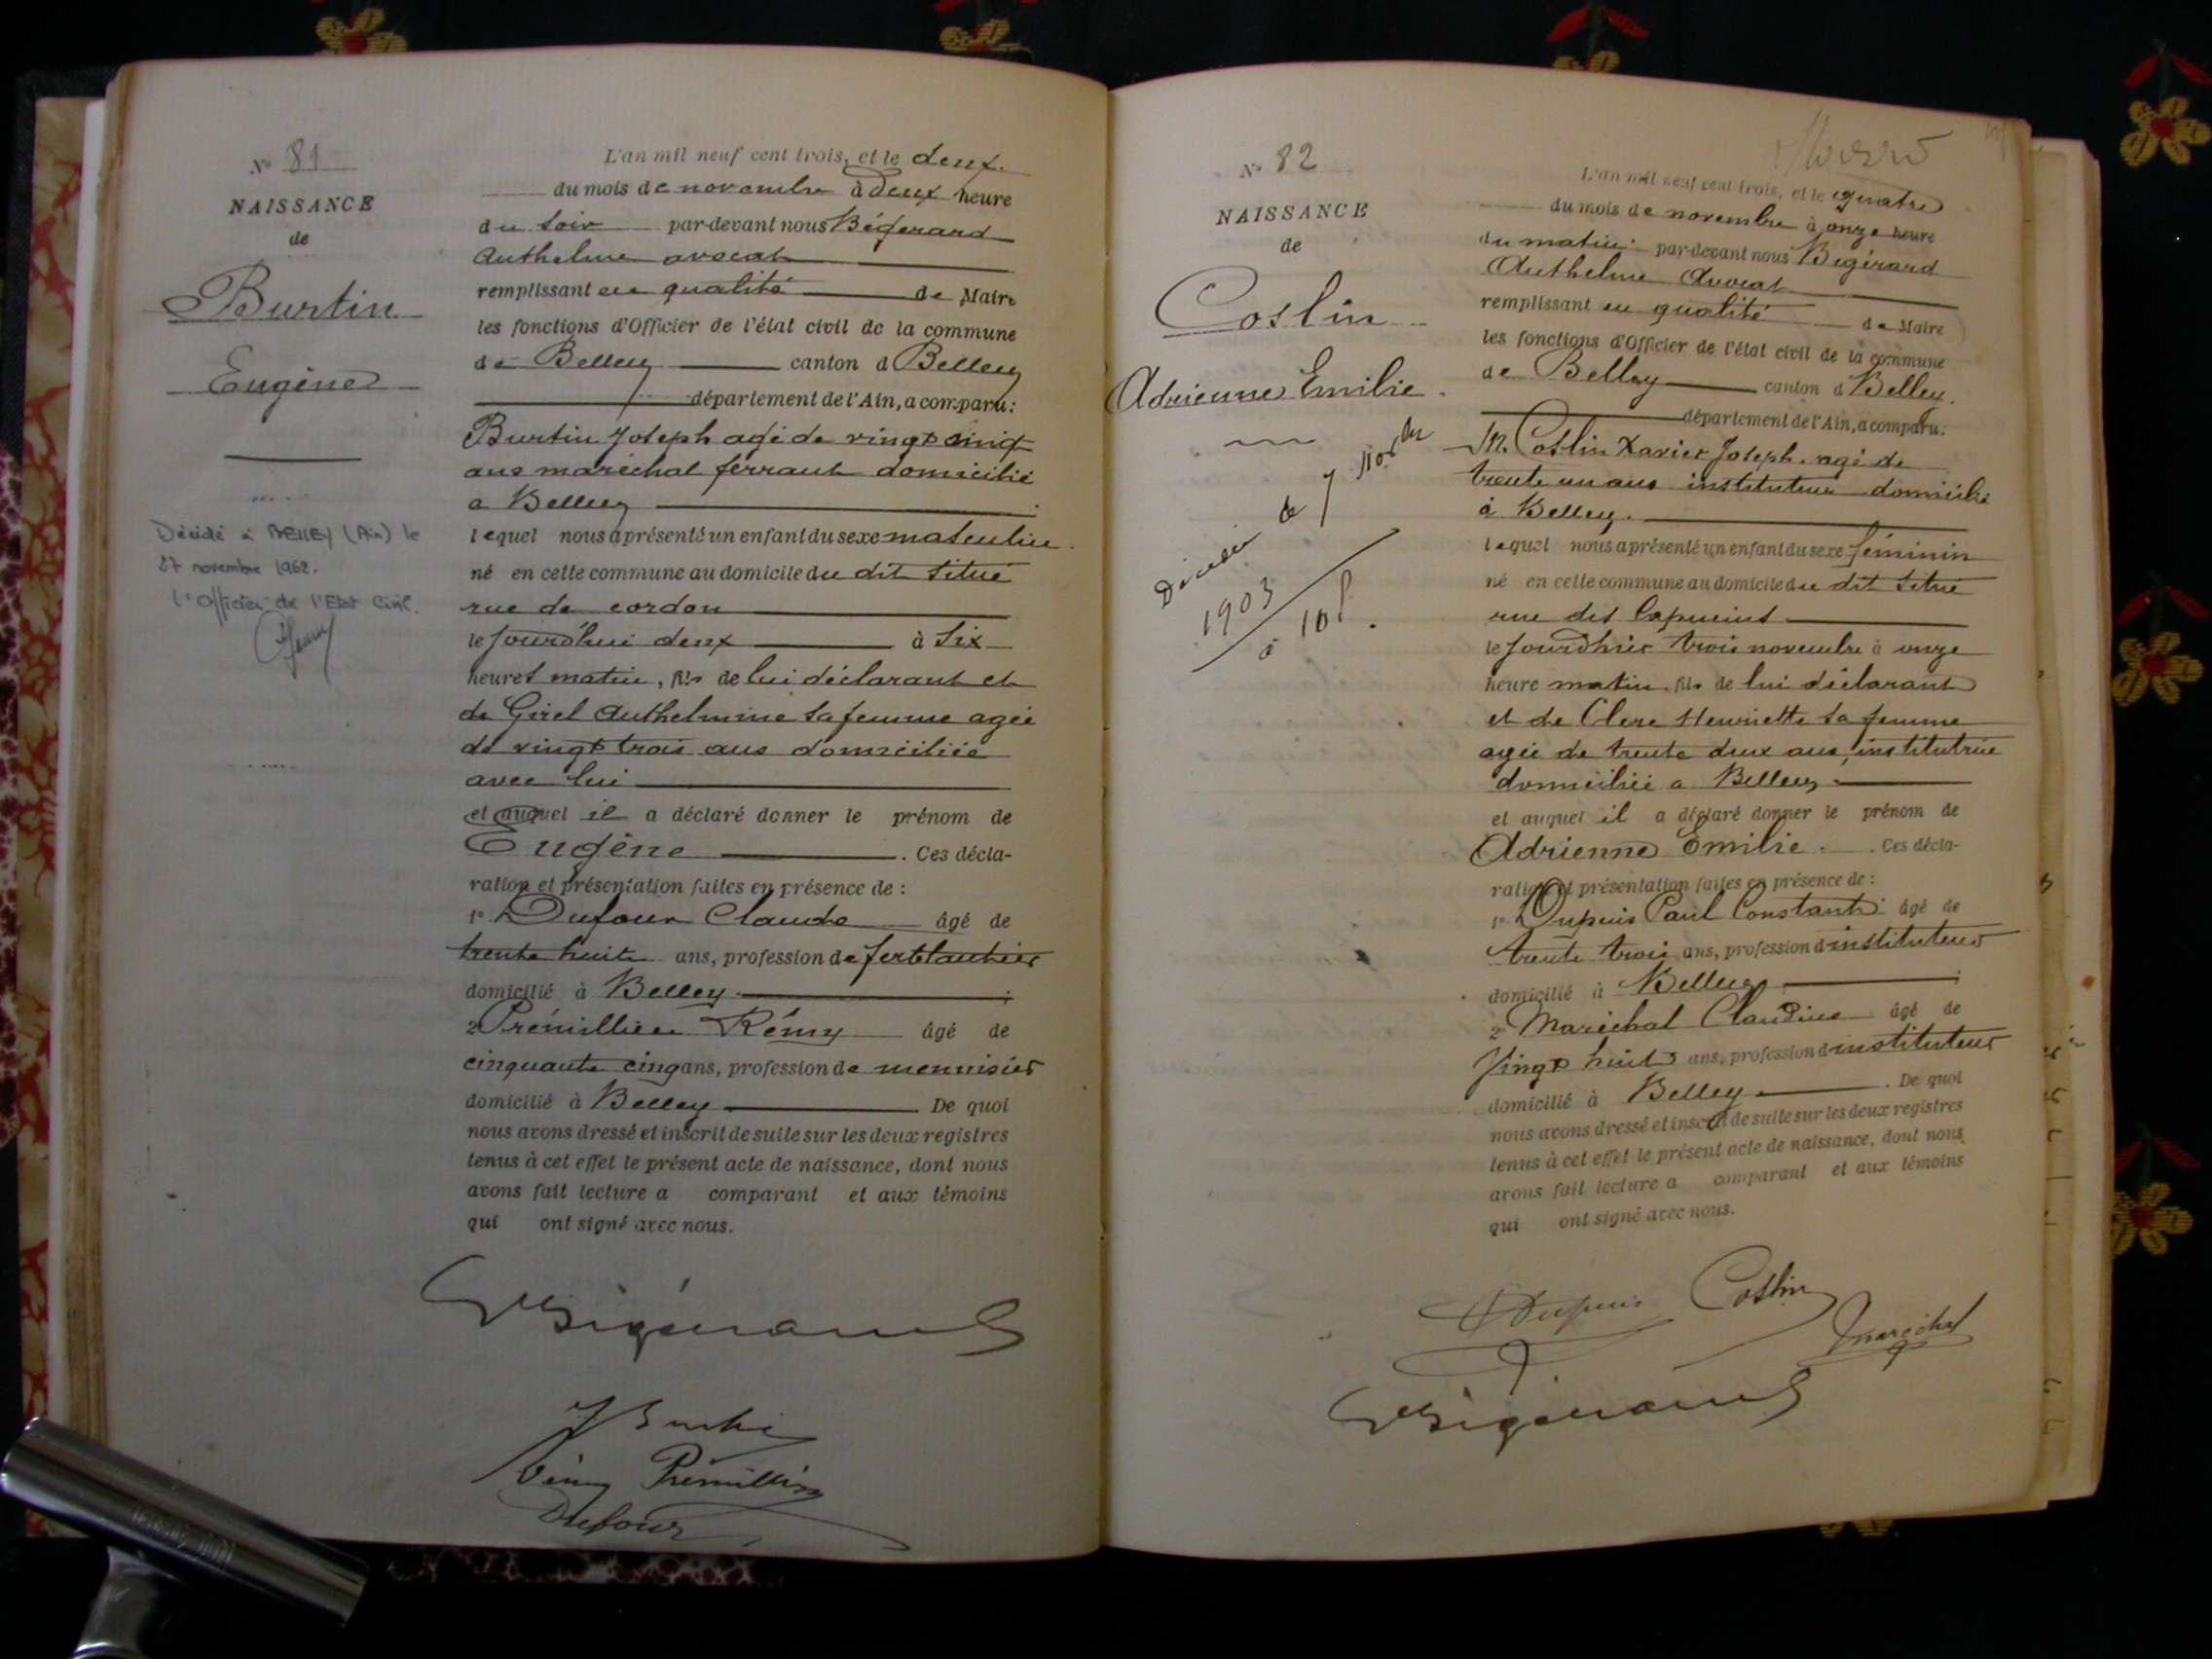 N° 81
NAISSANCE
de
Burtin
Eugène
Décédé à BELLEY (Ain) le
27 novembre 1962.
l'Officier de l'Etat Civil.
L'an mil neuf cent trois, et le deux
du mois de novembre à deux heure
du soir par-devant nous Bégérard
Anthelme avocat
remplissant en qualité de Maire
les fonctions d'Officier de l'état civil de la commune
de Belley canton d Belley
département de l'Ain, a comparu:
Burtin Joseph agé de vingt cinq
ans maréchal ferrant domicilié
a Belley
lequel nous a présenté un enfant du sexe masculin
né en cette commune au domicile du dit situé
rue de cordon
le jourd'hui deux à six
heures matin, fils de lui déclarant et
de Girel Anthelmine sa femme agée
de vingt trois ans domiciliée
avec lui
et auquel il a déclaré donner le prénom de
Eugène . Ces décla-
ration et présentation faites en présence de :
1° Dufour Claude âgé de
trente huit ans, profession de ferblantier
domicilié à Belley ;
2° Prémillieu Rémy âgé de
cinquante cinq ans, profession de menuisier
domicilié à Belley De quoi
nous avons dressé et inscrit de suite sur les deux registres
tenus à cet effet le présent acte de naissance, dont nous
avons fait lecture a comparant et aux témoins
qui ont signé avec nous.
Bigérard
J Burtin
Rémy Prémillieu
Dufour
N° 82
NAISSANCE
de
Coslin
Adrienne Emilie
Décédée le 7 Nov bre
1903
à 10 h.
L'an mil neuf cent trois, et le quatre
du mois de novembre à onze heure
du matin par-devant nous Bigérard
Anthelme Avocat
remplissant en qualité de Maire
les fonctions d'Officier de l'état civil de la commune
de Belley canton d Belley.
département de l'Ain, a comparu:
M. Coslin Xavier Joseph. agé de
trente un ans instituteur domicilié
à Belley.
lequel nous a présenté un enfant du sexe féminin
né en cette commune au domicile du dit situé
rue des Capucins
le jourd'hier trois novembre à onze
heure matin, fils de lui déclarant
et de Clerc Henriette sa femme
agée de trente deux ans, institutrice
domiciliée a Belley
et auquel il a déclaré donner le prénom de
Adrienne Emilie . Ces décla-
ration et présentation faites en présence de :
1° Dupuis Paul Constant âgé de
trente trois ans, profession d'instituteur
domicilié à Belley ;
2° Maréchal Claudius âgé de
Vingt huit ans, profession d'instituteur
domicilié à Belley . De quoi
nous avons dressé et inscrit de suite sur les deux registres
tenus à cet effet le présent acte de naissance, dont nous
avons fait lecture a comparant et aux témoins
qui ont signé avec nous.
Dupuis Coslin
Maréchal
Bigérard